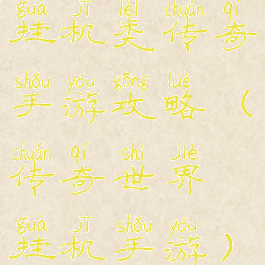 guà jī lèi chuán qí
挂机类传奇
shǒu yóu gōng lüè
手游攻略（
chuán qí shì jiè
传奇世界
guà jī shǒu yóu
挂机手游）